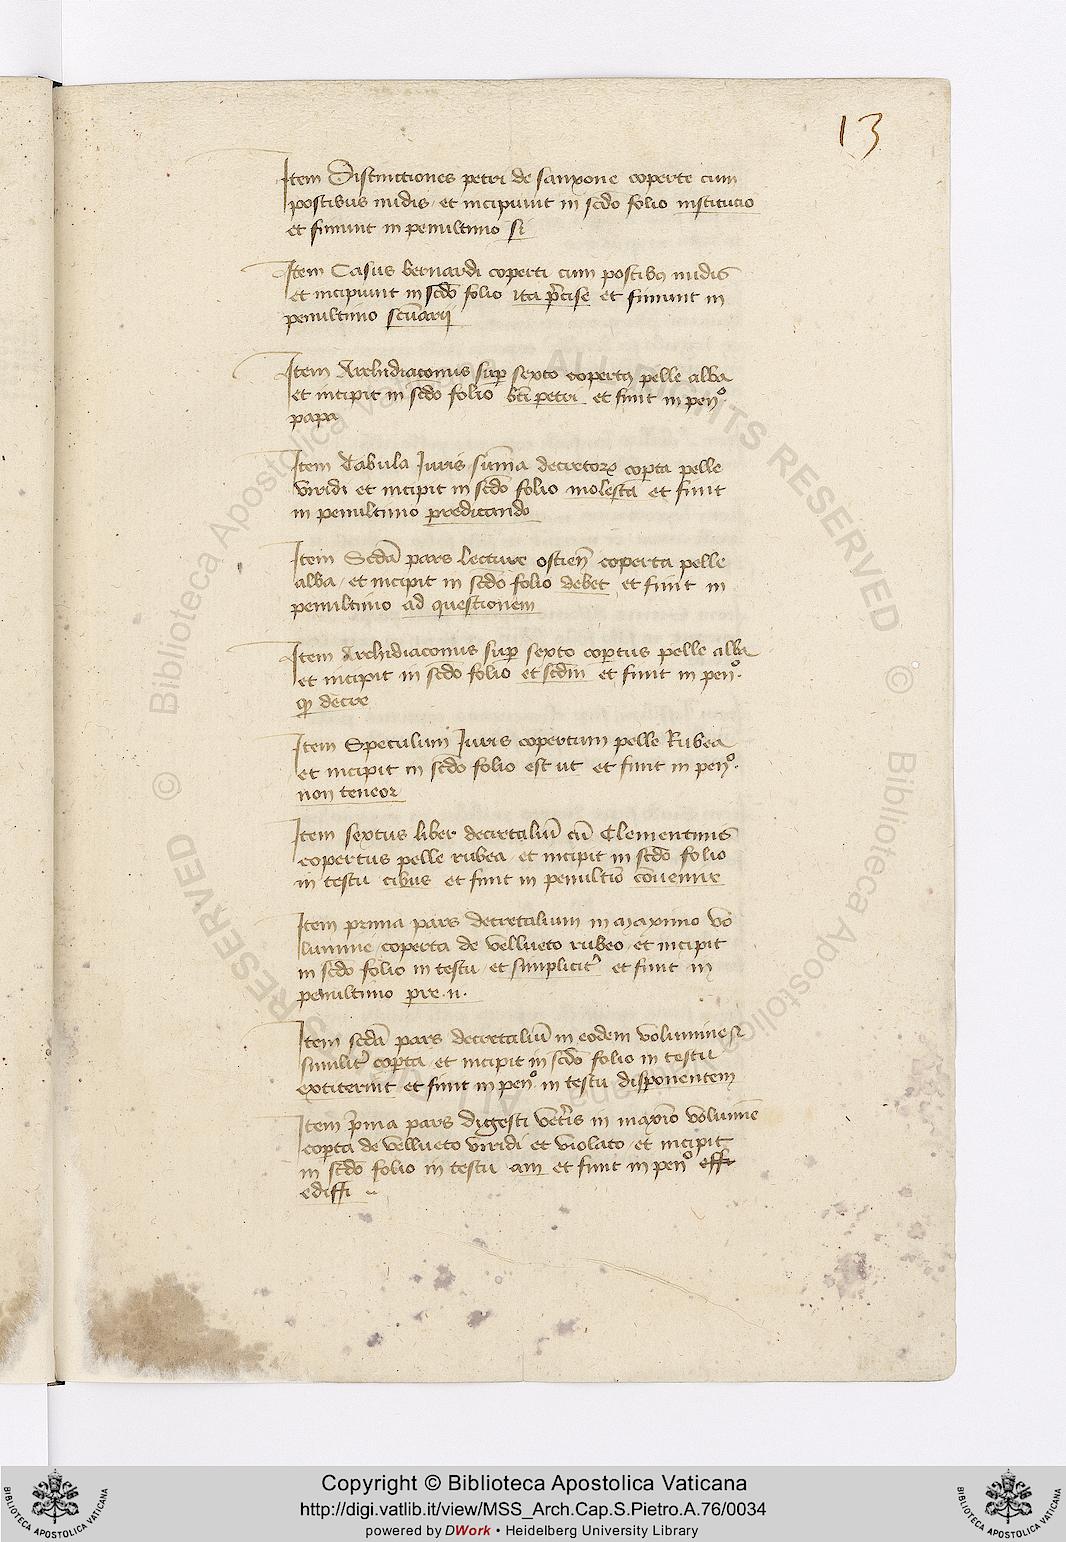 13
Item Distinctiones petri de sanxone coperte cum
postibus nudis et incipiunt in scdo folio institucio
et finiunt in penultimo si
Item Casus bernardi coperti cum postibus nudis
et incipiunt in scdo folio ita precise et finiunt in
penultimo
Item Archidiaconus super sexto copertus pelle alba
et incipit in scdo folio bti petri et finit in peno.
papa
Item tabula Juris summa decretorum coperta pelle
viridi et incipit in scdo folio molesta et finit
in penultimo predicando
Item Scda pars lecture ostien coperta pelle
alba et incipit in scdo folio debet et finit in
penultimo ad questionem
Item Archidiaconus super sexto copertus pelle alba
et incipit in scdo folio et scdm et finit in peno.
decre
Item Speculum Juris copertum pelle Rubea
et incipit in scdo folio est ut et finit in peno.
non teneor
Item sextus liber decretalium cum Clementinis
copertus pelle rubea et incipit in scdo folio
in testu cibus et finit in penultio convenire
Item prima pars decretalium in maximo vo
lumine coperta de vellueto rubeo et incipit
in scdo folio in testu et simpliciter et finit in
penultimo pre.n.
Item scda pars decretalium in eodem volumine
similiter coperta et incipit in scdo folio in testu
extiterint et finit in peno in testu disponentem
Item prima pars digesti veteris in maximo volumine
coperta de vellueto viridi et violato et incipit
in scdo folio in testu am et finit in peno effi
ediffi
© Biblioteca Apostolica Vaticana ALL RIGHTS RESERVED
© Biblioteca Apostolica Vaticana ALL RIGHTS RESERVED
Copyright © Biblioteca Apostolica Vaticana
http://digi.vatlib.it/view/MSS_Arch.Cap.S.Pietro.A.76/0034
powered by DWork • Heidelberg University Library
BIBLIOTECA APOSTOLICA VATICANA
BIBLIOTECA APOSTOLICA VATICANA